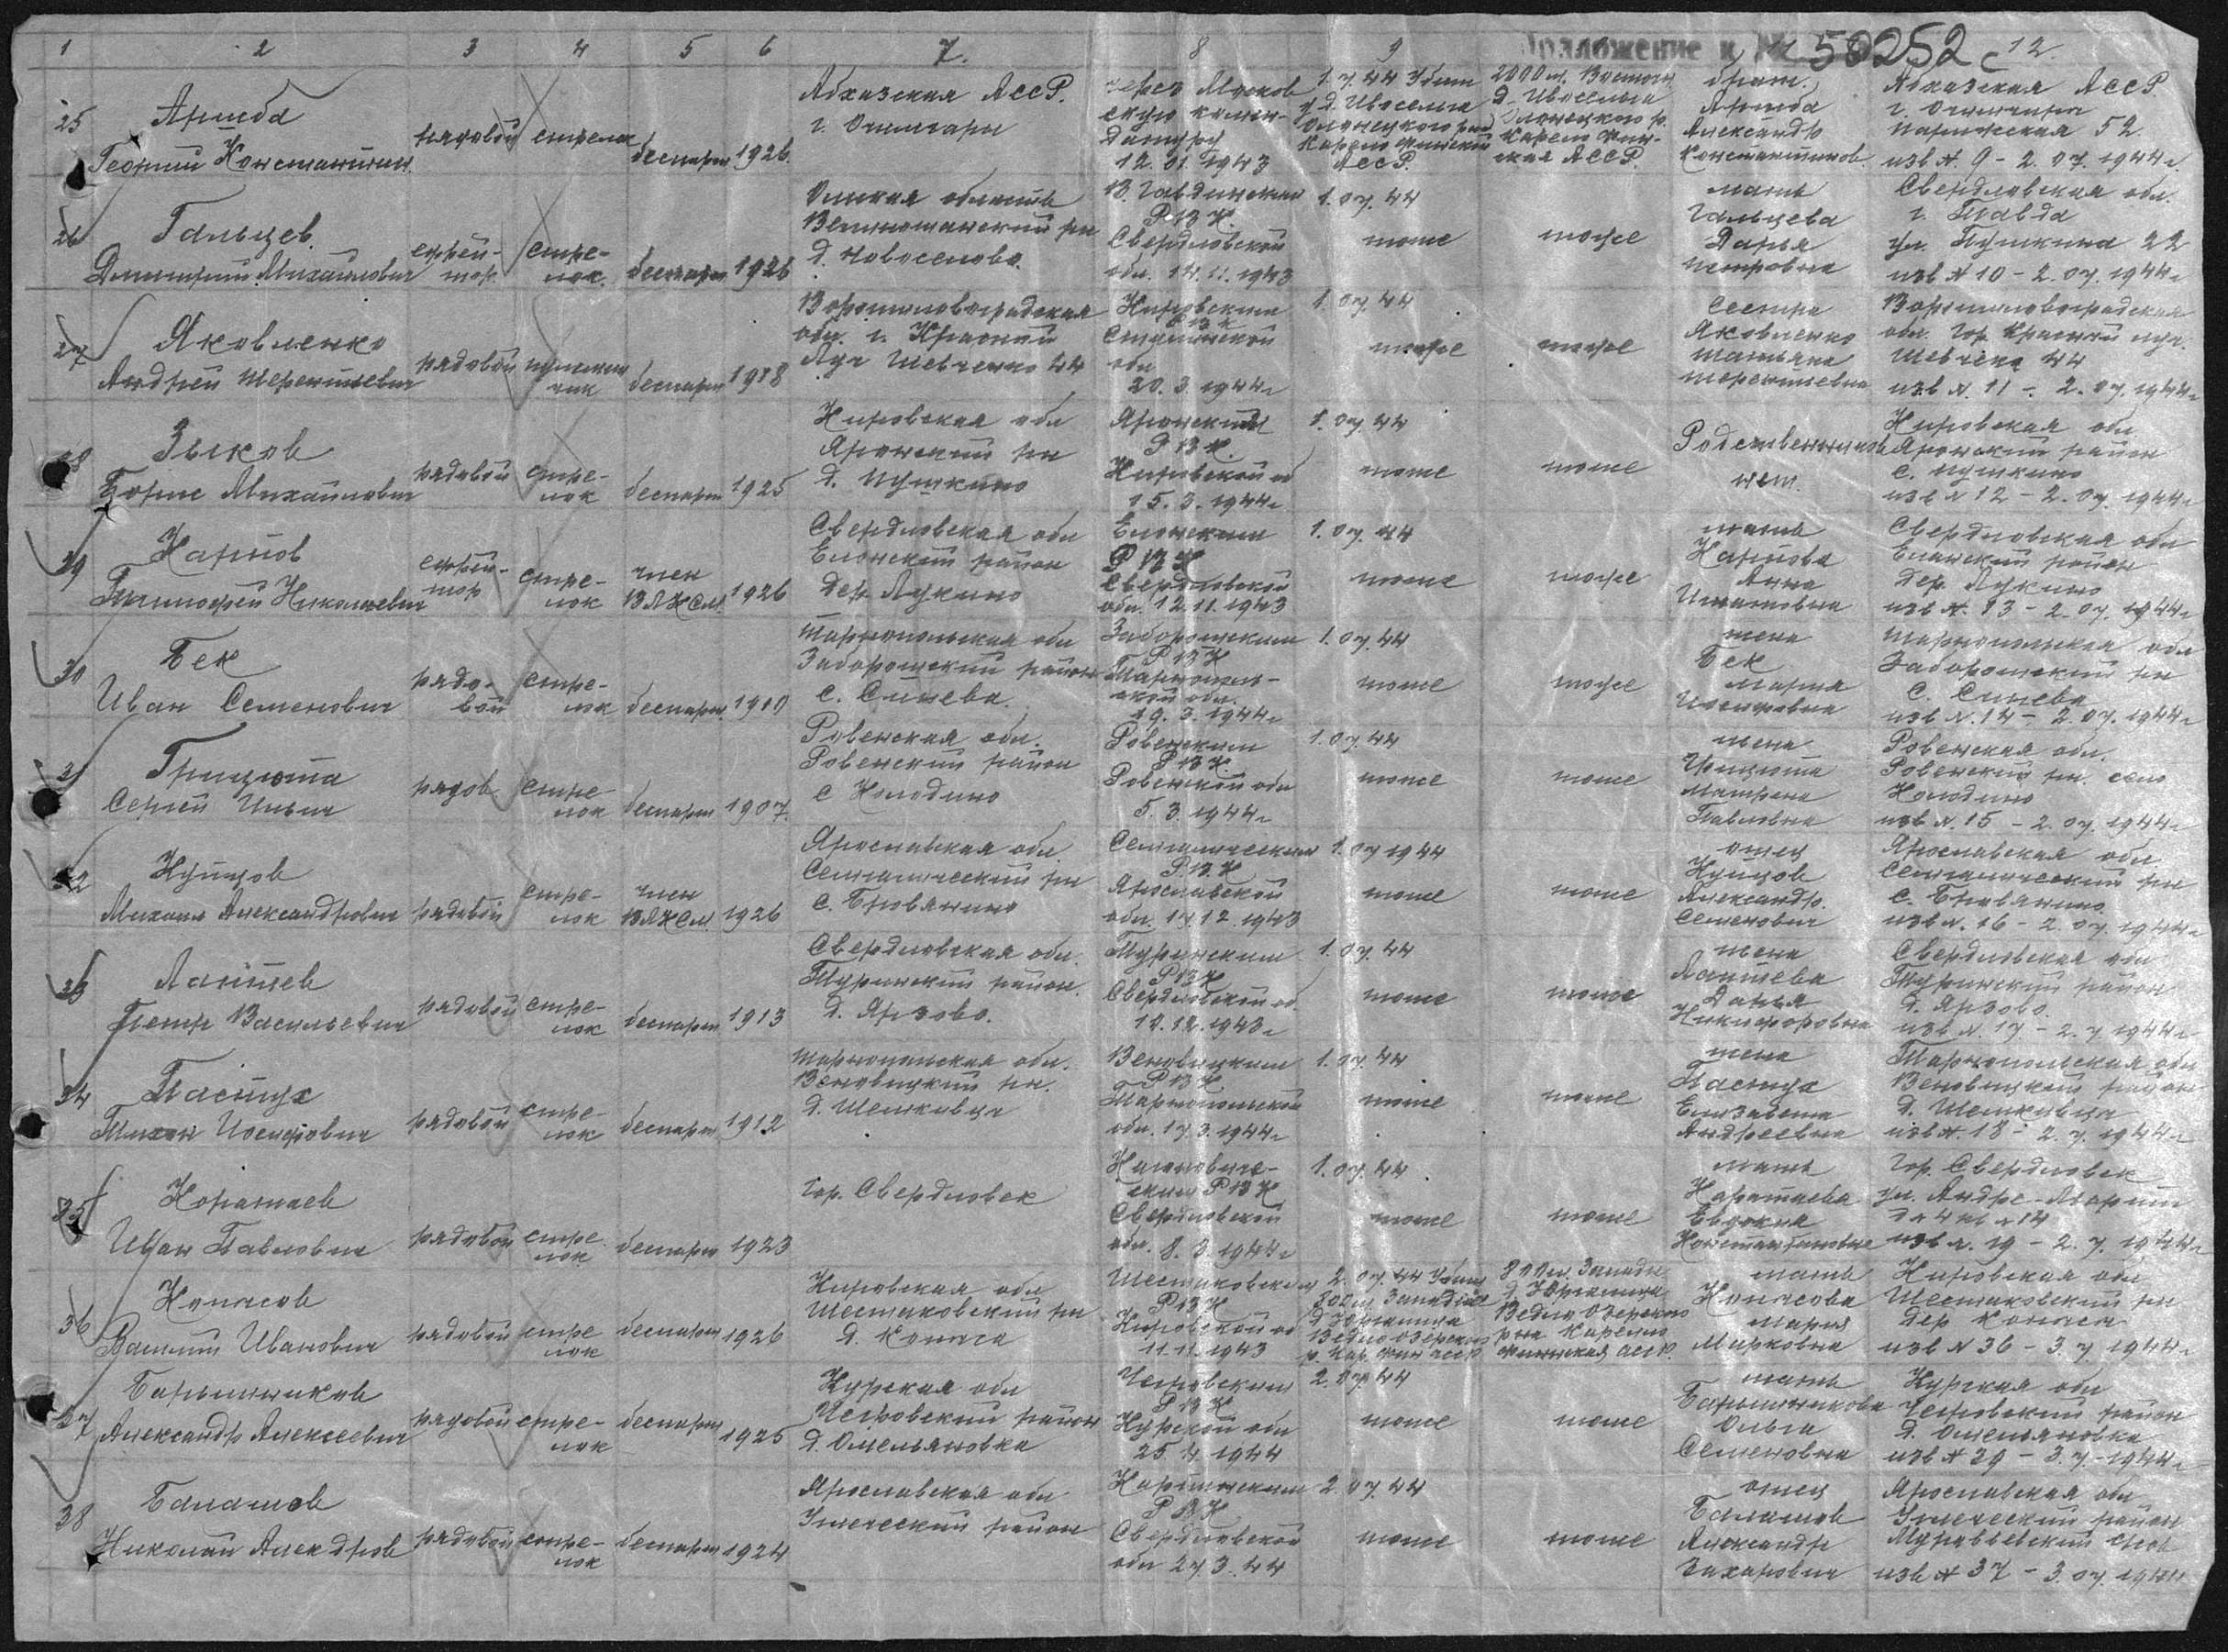 1 2 3 4 5 6 7. 8 9 Приложение к № 50252 с 12.
25 Аршба
Георгий Константин.
рядовой стрелок беспарт 1926.
Абхазская АССР.
г. Очемчири
через Москов
скую комен-
датуру
12. 01. 1943
1. 7. 44 Убит
у д. Ивосельга
Олонецкого р-на
Карело Финской
АССР.
2000 м. Восточн.
д. Ивосельга
Олонецкого р.
Карело Фин-
ская АССР.
брат.
Аршба
Александр
Константинов.
Абхазская АССР
г. Очемчири
52.
изв №. 9 - 2. 07. 1944 г
26 Гальцев.
Дмитрий Михайлович
ефрей-
тор.
стре-
лок.
беспарт 1926
Омская область
р-н
д. Новоселово.
В. Тавдинским
РВК
Свердловской
обл. 14. 11. 1943
1. 07. 44
тоже тоже
мать
Гальцева
Дарья
Петровна
Свердловская обл.
г. Тавда
ул. Пушкина 22
изв № 10 - 2. 07. 1944 г
27 Яковленко
Андрей Терентьевич
рядовой беспарт 1918
Ворошиловоградская
обл. г. Красный
Луч Шевченко 44
Кировским
РВК
обл
20. 3. 1944 г
1. 07. 44
тоже тоже
сестра
Яковленко
Татьяна
Терентьевна
Ворошиловоградская
обл. гор. Красный луч.
Шевченко 44
изв №. 11 - 2. 07. 1944 г
28 Зыков
Борис Михайлович
рядовой
стре-
лок
беспарт 1925
Кировская обл
Яранский р-н
д. Пушкино
Яранским
РВК.
Кировской об
15. 3. 1944 г
1. 07. 44
тоже тоже
Родственников
нет.
Кировская обл
Яранский район
с. Пушкино
изв № 12 - 2. 07. 1944 г
29 Карпов
Тимофей Николаевич
ефрей-
тор
стре-
лок
член
ВЛКСМ. 1926
Свердловская обл
Еланский район
дер. Лукино
Еланским
РВК
Свердловской
обл. 12. 11. 1943
1. 07. 44
тоже тоже
мать
Карпова
Анна
Игнатовна
Свердловская обл
Еланский район
дер. Лукино
изв №. 13 - 2. 07. 1944 г
30 Бек
Иван Семенович
рядо-
вой
стре-
лок
беспарт. 1910
Тарнопольская обл
Заборожский район
с. Синева.
Заборожским
РВК
Тарнополь-
ской обл.
19. 3. 1944 г
1. 07. 44
тоже тоже
жена
Бек
Мария
Иосифовна
Тарнопольская обл
Заборожский рн
с. Синева
изв №. 14 - 2. 07. 1944 г
31 Грицюта
Сергей Ильич
рядов.
стре
лок
беспарт 1907.
Ровенская обл.
Ровенский район
с Колодино
Ровенским
РВК
Ровенской обл
5. 3. 1944 г
1. 07. 44
тоже тоже
жена
Грицюта
Матрена
Павловна
Ровенская обл.
Ровенский рн. село
Колодино
изв №. 15 - 2. 07. 1944 г
32 Купцов
Михаил Александрович
рядовой
стре-
лок
член
ВЛКСМ. 1926
Ярославская обл.
рн
с.
РВК
Ярославской
обл. 17. 12. 1943
1. 07 1944
тоже тоже
отец
Купцов
Александр.
Семенович
Ярославская обл.
рн
с.
изв №. 16 - 2. 07. 1944 г
33 Лаптев
Петр Васильевич
рядовой
стре-
лок
беспарт 1913
Свердловская обл.
Туринский район.
д. Ярзово.
Туринским
РВК
Свердловской об.
12. 12. 1943 г
1. 07. 44
тоже тоже
жена
Лаптева
Дарья
Никифоровна
Свердловская обл
Туринский район
д. Ярзово.
изв №. 17 - 2. 7. 1944 г
34 Пастух
Иосифович
рядовой
стре-
лок
беспарт 1912
Тарнопольская обл.
рн.
д.
РВК.
Тарнопольской
обл. 17. 3. 1944 г
1. 07. 44
тоже тоже
жена
Пастух
Елизавета
Андреевна
Тарнопольская обл
район
д.
изв №. 18 - 2. 7. 1944 г
35 Коратаев
Иван Павлович
рядовой
стре
лок
беспарт 1923
Гор. Свердловск
Кагановиче-
ским РВК
Свердловской
обл. 8. 3. 1944 г
1. 07. 44
тоже тоже
мать
Каратаева
Евдокия
Константиновна
Гор. Свердловск
ул. Андре-Марти
д № 4 кв № 14
изв №. 19 - 2. 7. 1944 г
36 Копысов
Василий Иванович
рядовой
стре
лок
беспарт 1926
Кировская обл
Шестаковский рн
д. Копыса
Шестаковским
РВК
Кировской об
11. 11. 1943
2. 07. 44 Убит
800 м. Западнее
Ведлозерского
р. Кар. Фин АССР
800 м. Западн.
Ведлозерского
р-на Карело
Финская АССР.
мать
Копысова
Мария
Марковна
Кировская обл
Шестаковский рн
дер Копыса
изв № 36 - 3. 7. 1944 г
37 Барышников
Александр Алексеевич
рядовой
стре-
лок
беспарт 1925
Курская обл
район
д. Омельяновка
РВК
Курской обл
25. 4. 1944
2. 07. 44
тоже тоже
мать
Барышникова
Ольга
Семеновна
Курская обл
район
д. Омельяновка
изв № 39 - 3. 7. - 1944 г
38 Балашов
Николай Алек-дров
рядовой
стре-
лок
беспарт 1924
Ярославская обл
Угличский район
Карпинским
РВК
Свердловской
обл 27. 3. 44
2. 07. 44
тоже тоже
отец
Балашов
Александр
Захарович
Ярославская обл
Угличский район
Муравьевский с/сов
изв № 37 - 3. 07. 1944